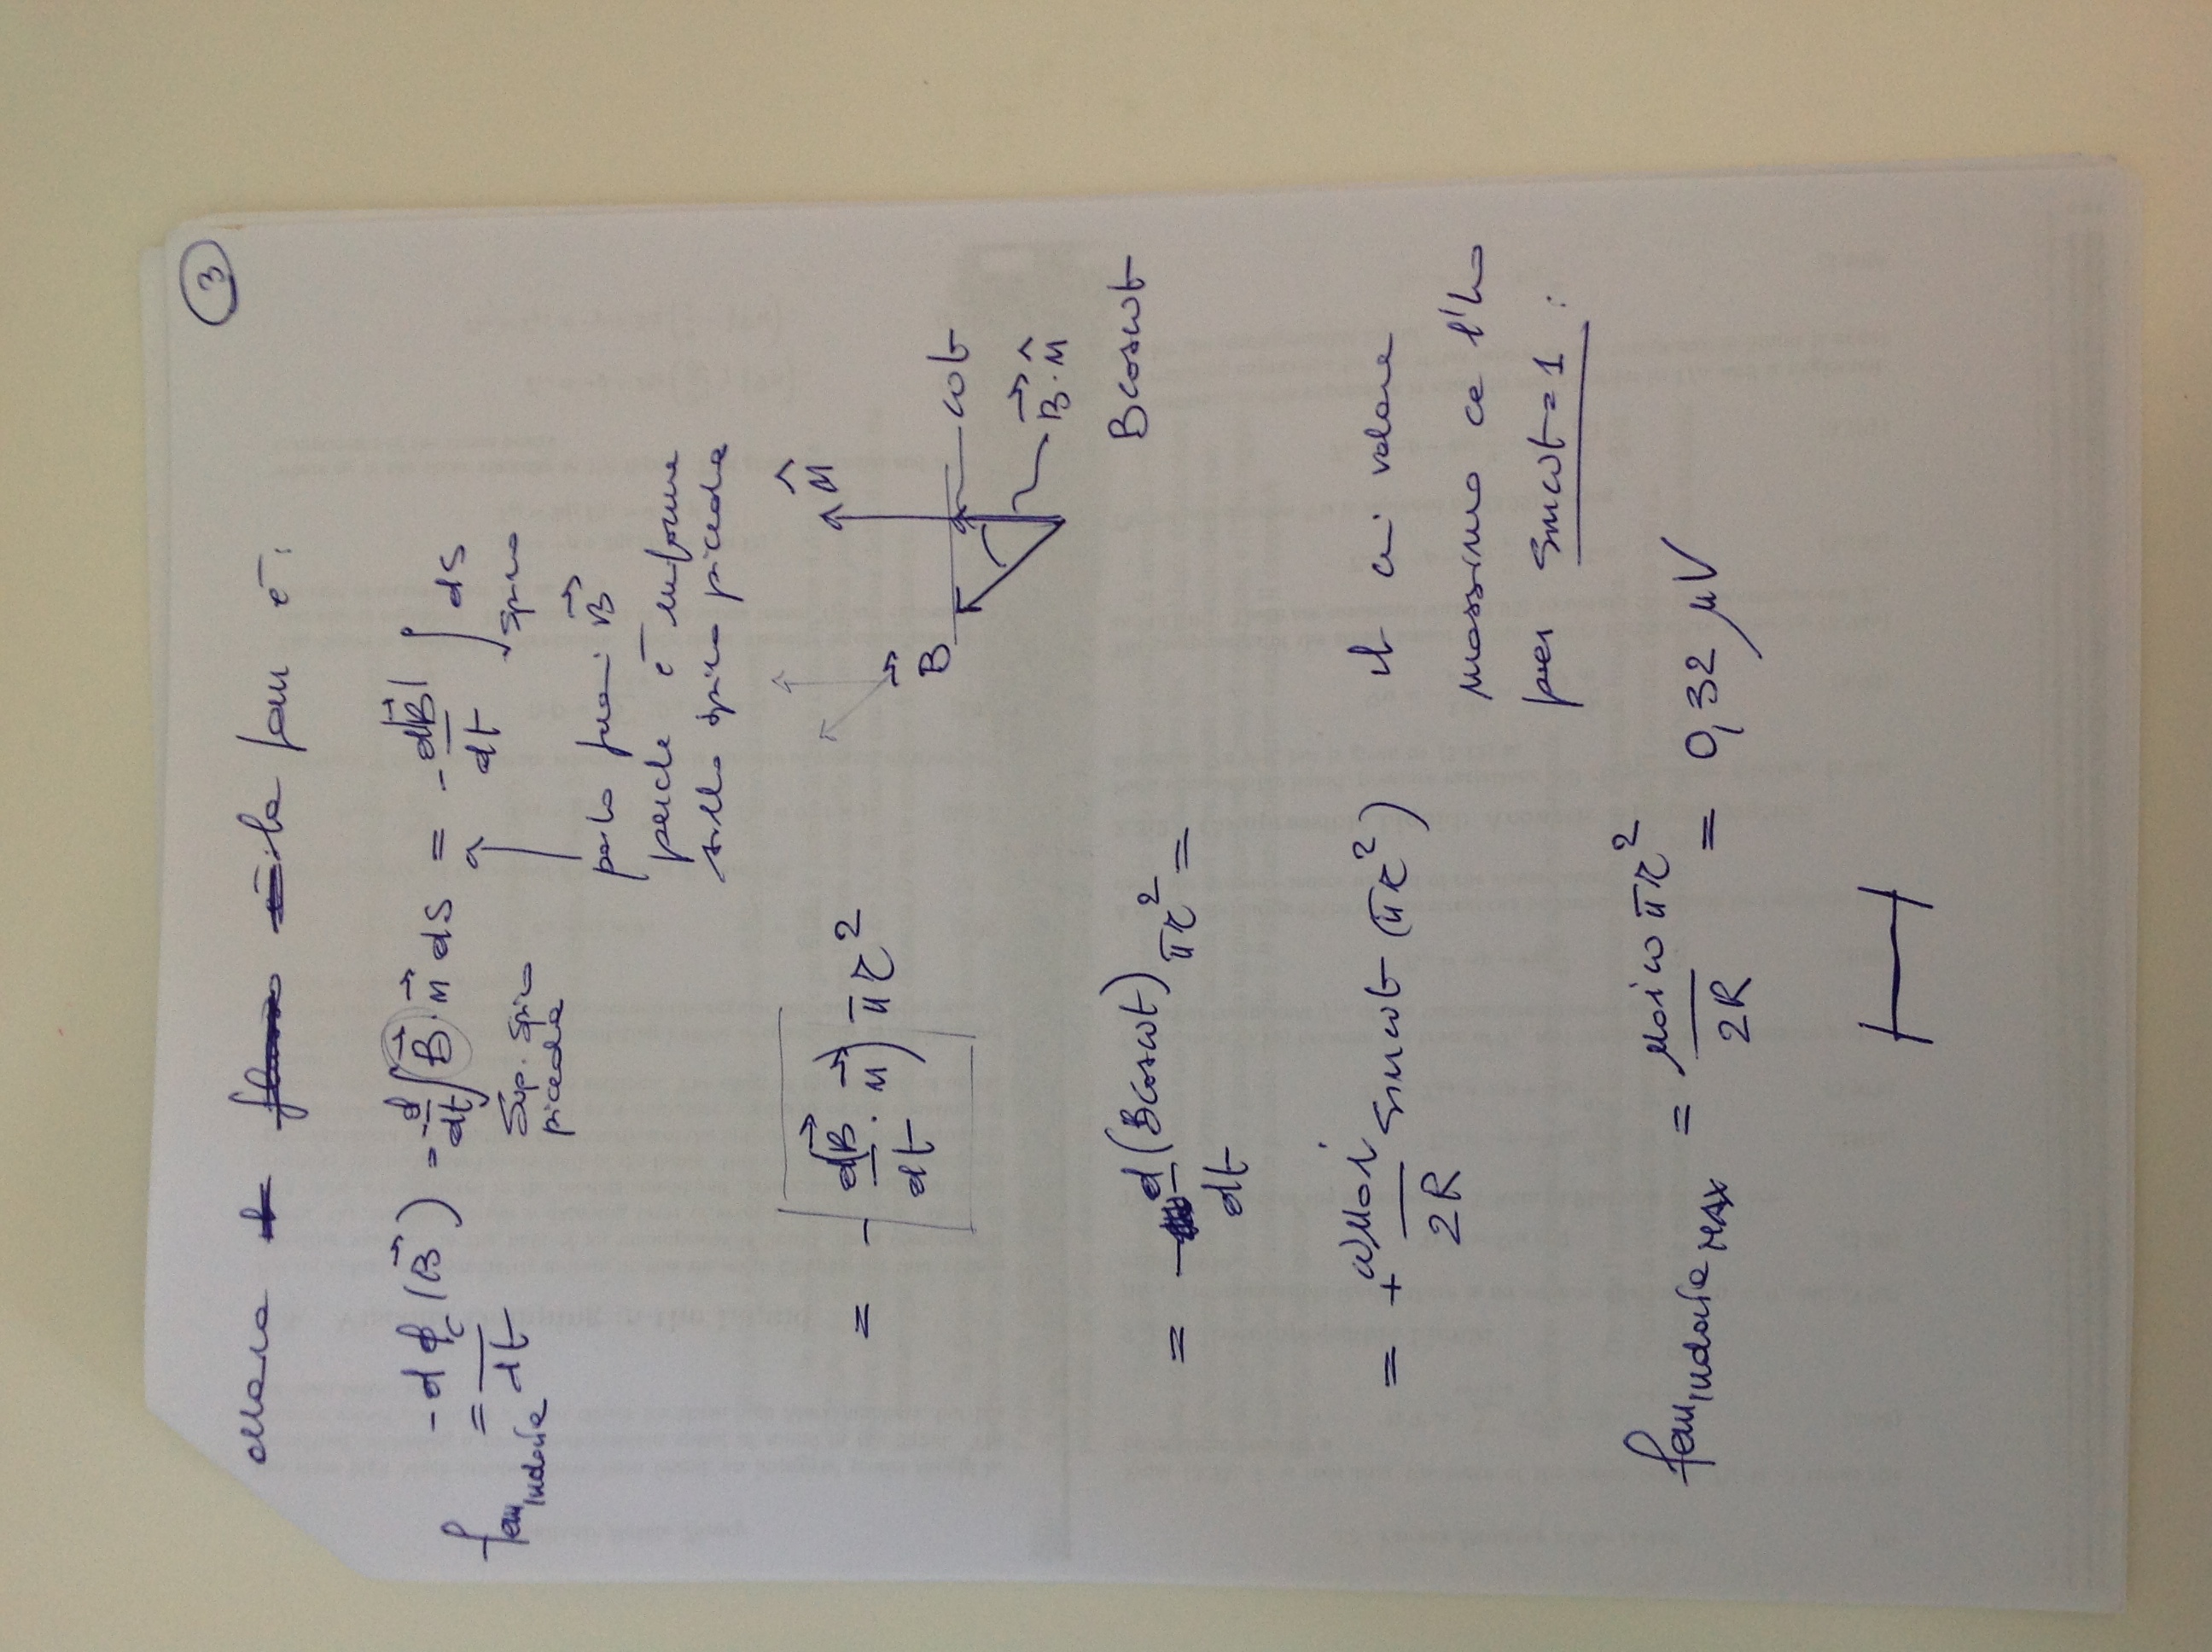 3
allora la fem è:
fem indotta = -dϕc(B⃗)/dt = -d/dt ∫ B⃗·n⃗ dS = -d|B⃗|/dt ∫ dS
Sup. spira piccola
spira
porto fuori B⃗
perche è uniforme
sulla spira piccola
= -(dB⃗/dt · n⃗) πr²
n̂
B⃗
ωt
B⃗·n̂
Bcosωt
= -d(Bcosωt)/dt πr² =
= + ωμ₀i/2R sinωt (πr²)
il cui valore
massimo ce l'ho
per sinωt=1 :
fem indotta MAX = μ₀iωπr²/2R = 0,32 μV